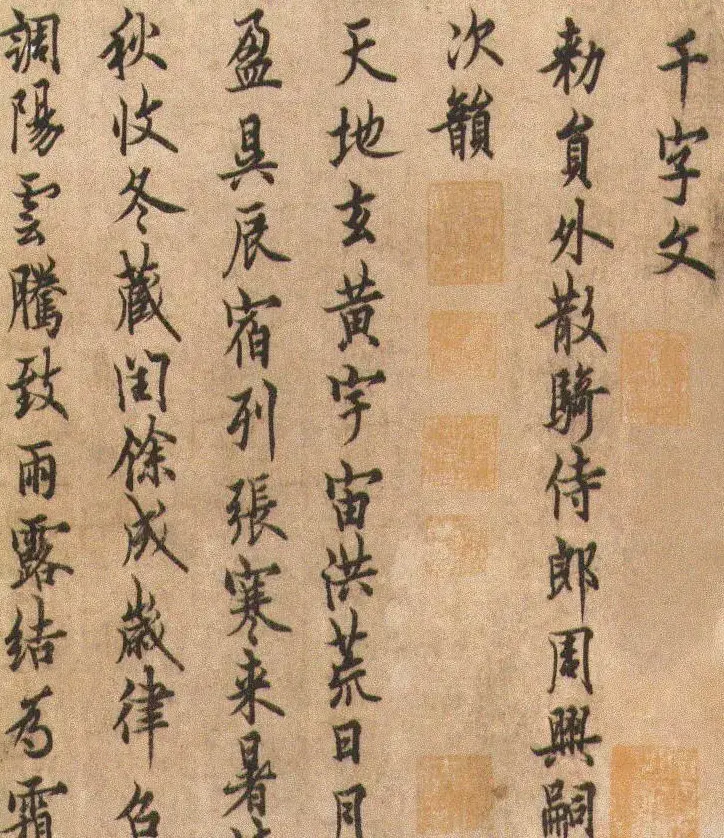 千字文
勅員外散騎侍郎周興嗣
次韻
天地玄黃宇宙洪荒日月
盈昃辰宿列張寒来暑
秋收冬藏閏餘成歲律召
調陽雲騰致雨露結為霜